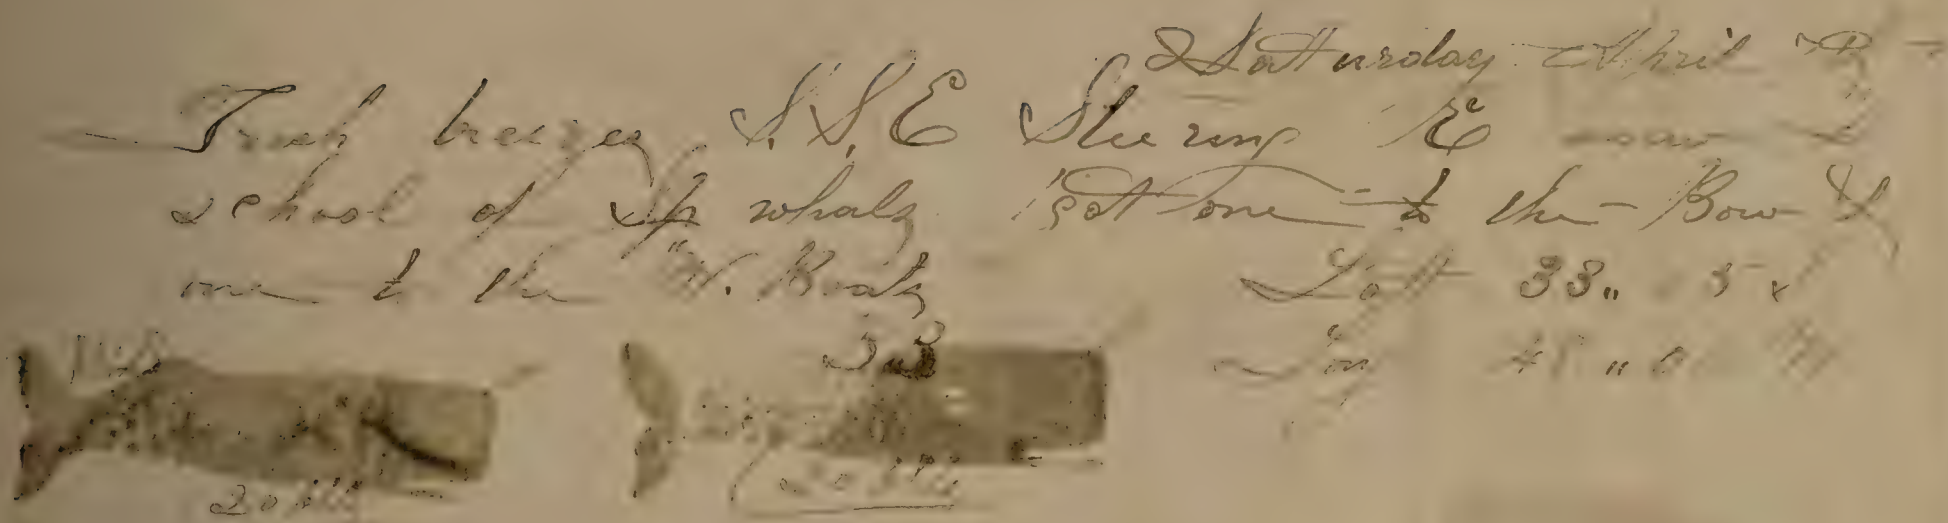 Saturday April
Fresh breezes S.S.E Steering E saw a
school of Sp whales Got one to the Bow &
one to the W. Boats
Latt 33
Long
33
20 bbls
20 bbls